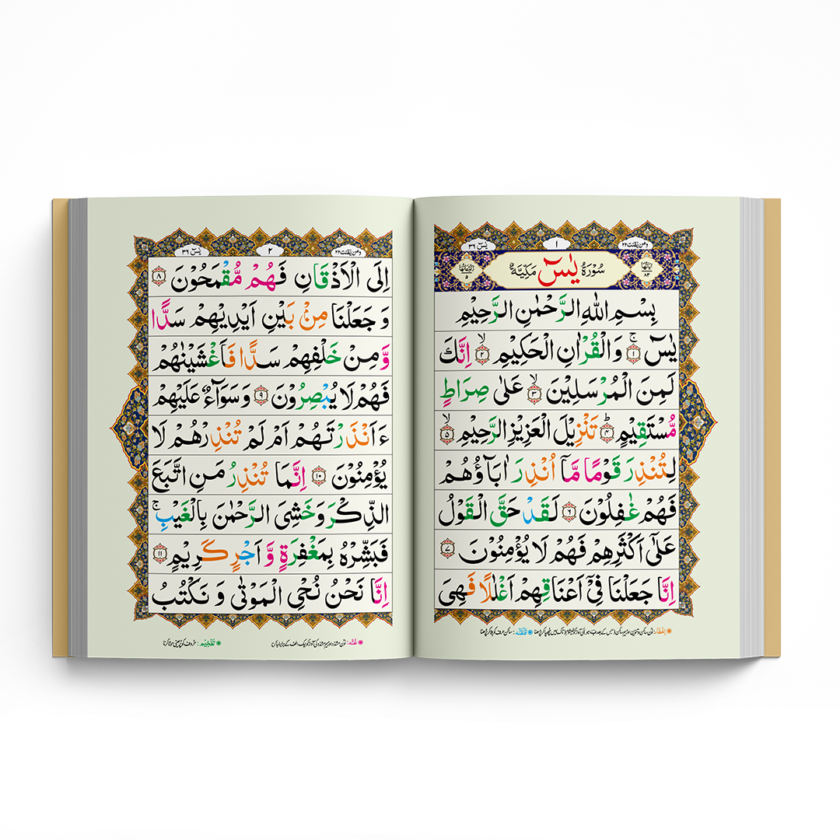 یٰسٓ ٣٦
١
ومن یقنت ٢٢
سُوْرَةُ یٰسٓ مَكِّیَّةٌ
بِسْمِ اللّٰهِ الرَّحْمٰنِ الرَّحِیْمِ
یٰسٓ ۚ﴿١﴾ وَالْقُرْاٰنِ الْحَكِیْمِ ۙ﴿٢﴾ اِنَّكَ
لَمِنَ الْمُرْسَلِیْنَ ۙ﴿٣﴾ عَلٰی صِرَاطٍ
مُّسْتَقِیْمٍ ؕ﴿٤﴾ تَنْزِیْلَ الْعَزِیْزِ الرَّحِیْمِ ۙ﴿٥﴾
لِتُنْذِرَ قَوْمًا مَّاۤ اُنْذِرَ اٰبَآؤُهُمْ
فَهُمْ غٰفِلُوْنَ ﴿٦﴾ لَقَدْ حَقَّ الْقَوْلُ
عَلٰۤی اَكْثَرِهِمْ فَهُمْ لَا یُؤْمِنُوْنَ ﴿٧﴾
اِنَّا جَعَلْنَا فِیْۤ اَعْنَاقِهِمْ اَغْلٰلًا فَهِیَ
یٰسٓ ٣٦
٢
ومن یقنت ٢٢
اِلَی الْاَذْقَانِ فَهُمْ مُّقْمَحُوْنَ ﴿٨﴾
وَ جَعَلْنَا مِنْۢ بَیْنِ اَیْدِیْهِمْ سَدًّا
وَّ مِنْ خَلْفِهِمْ سَدًّا فَاَغْشَیْنٰهُمْ
فَهُمْ لَا یُبْصِرُوْنَ ﴿٩﴾ وَ سَوَآءٌ عَلَیْهِمْ
ءَاَنْذَرْتَهُمْ اَمْ لَمْ تُنْذِرْهُمْ لَا
یُؤْمِنُوْنَ ﴿١٠﴾ اِنَّمَا تُنْذِرُ مَنِ اتَّبَعَ
الذِّكْرَ وَخَشِیَ الرَّحْمٰنَ بِالْغَیْبِ ۚ
فَبَشِّرْهُ بِمَغْفِرَةٍ وَّ اَجْرٍ كَرِیْمٍ ﴿١١﴾
اِنَّا نَحْنُ نُحْیِ الْمَوْتٰی وَ نَكْتُبُ